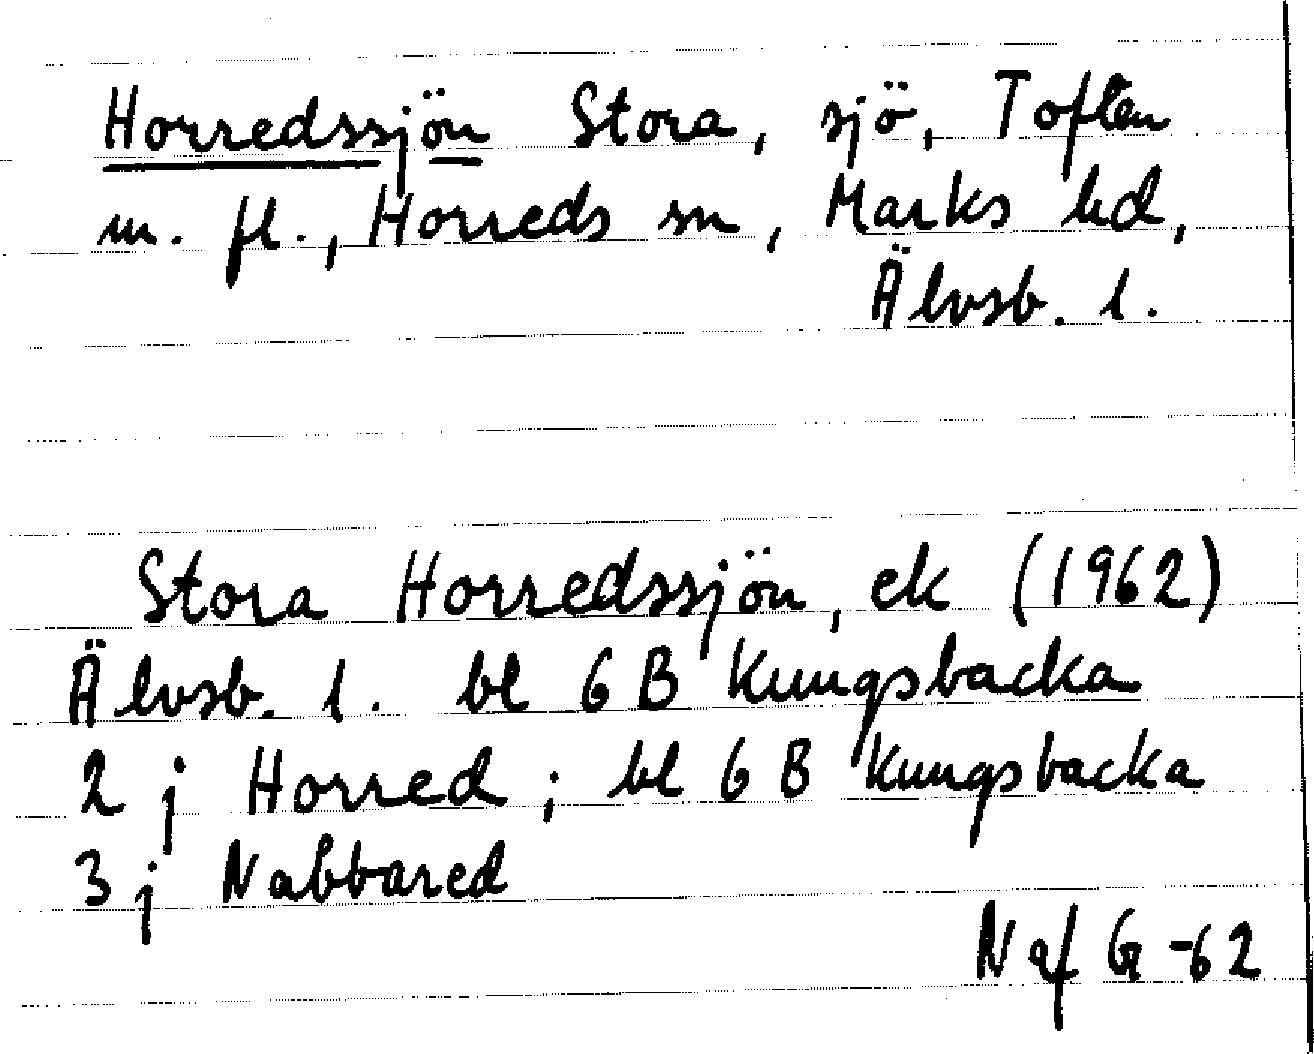 Horredssjön Stora, sjö, Toften
m. fl., Horreds sn, Marks hd,
Älvsb. l.
Stora Horredssjön, ek (1962)
Älvsb. l. bl 6 B Kungsbacka
2 j Horred; bl 6 B Kungsbacka
3 j Nabbared
Naf G -62